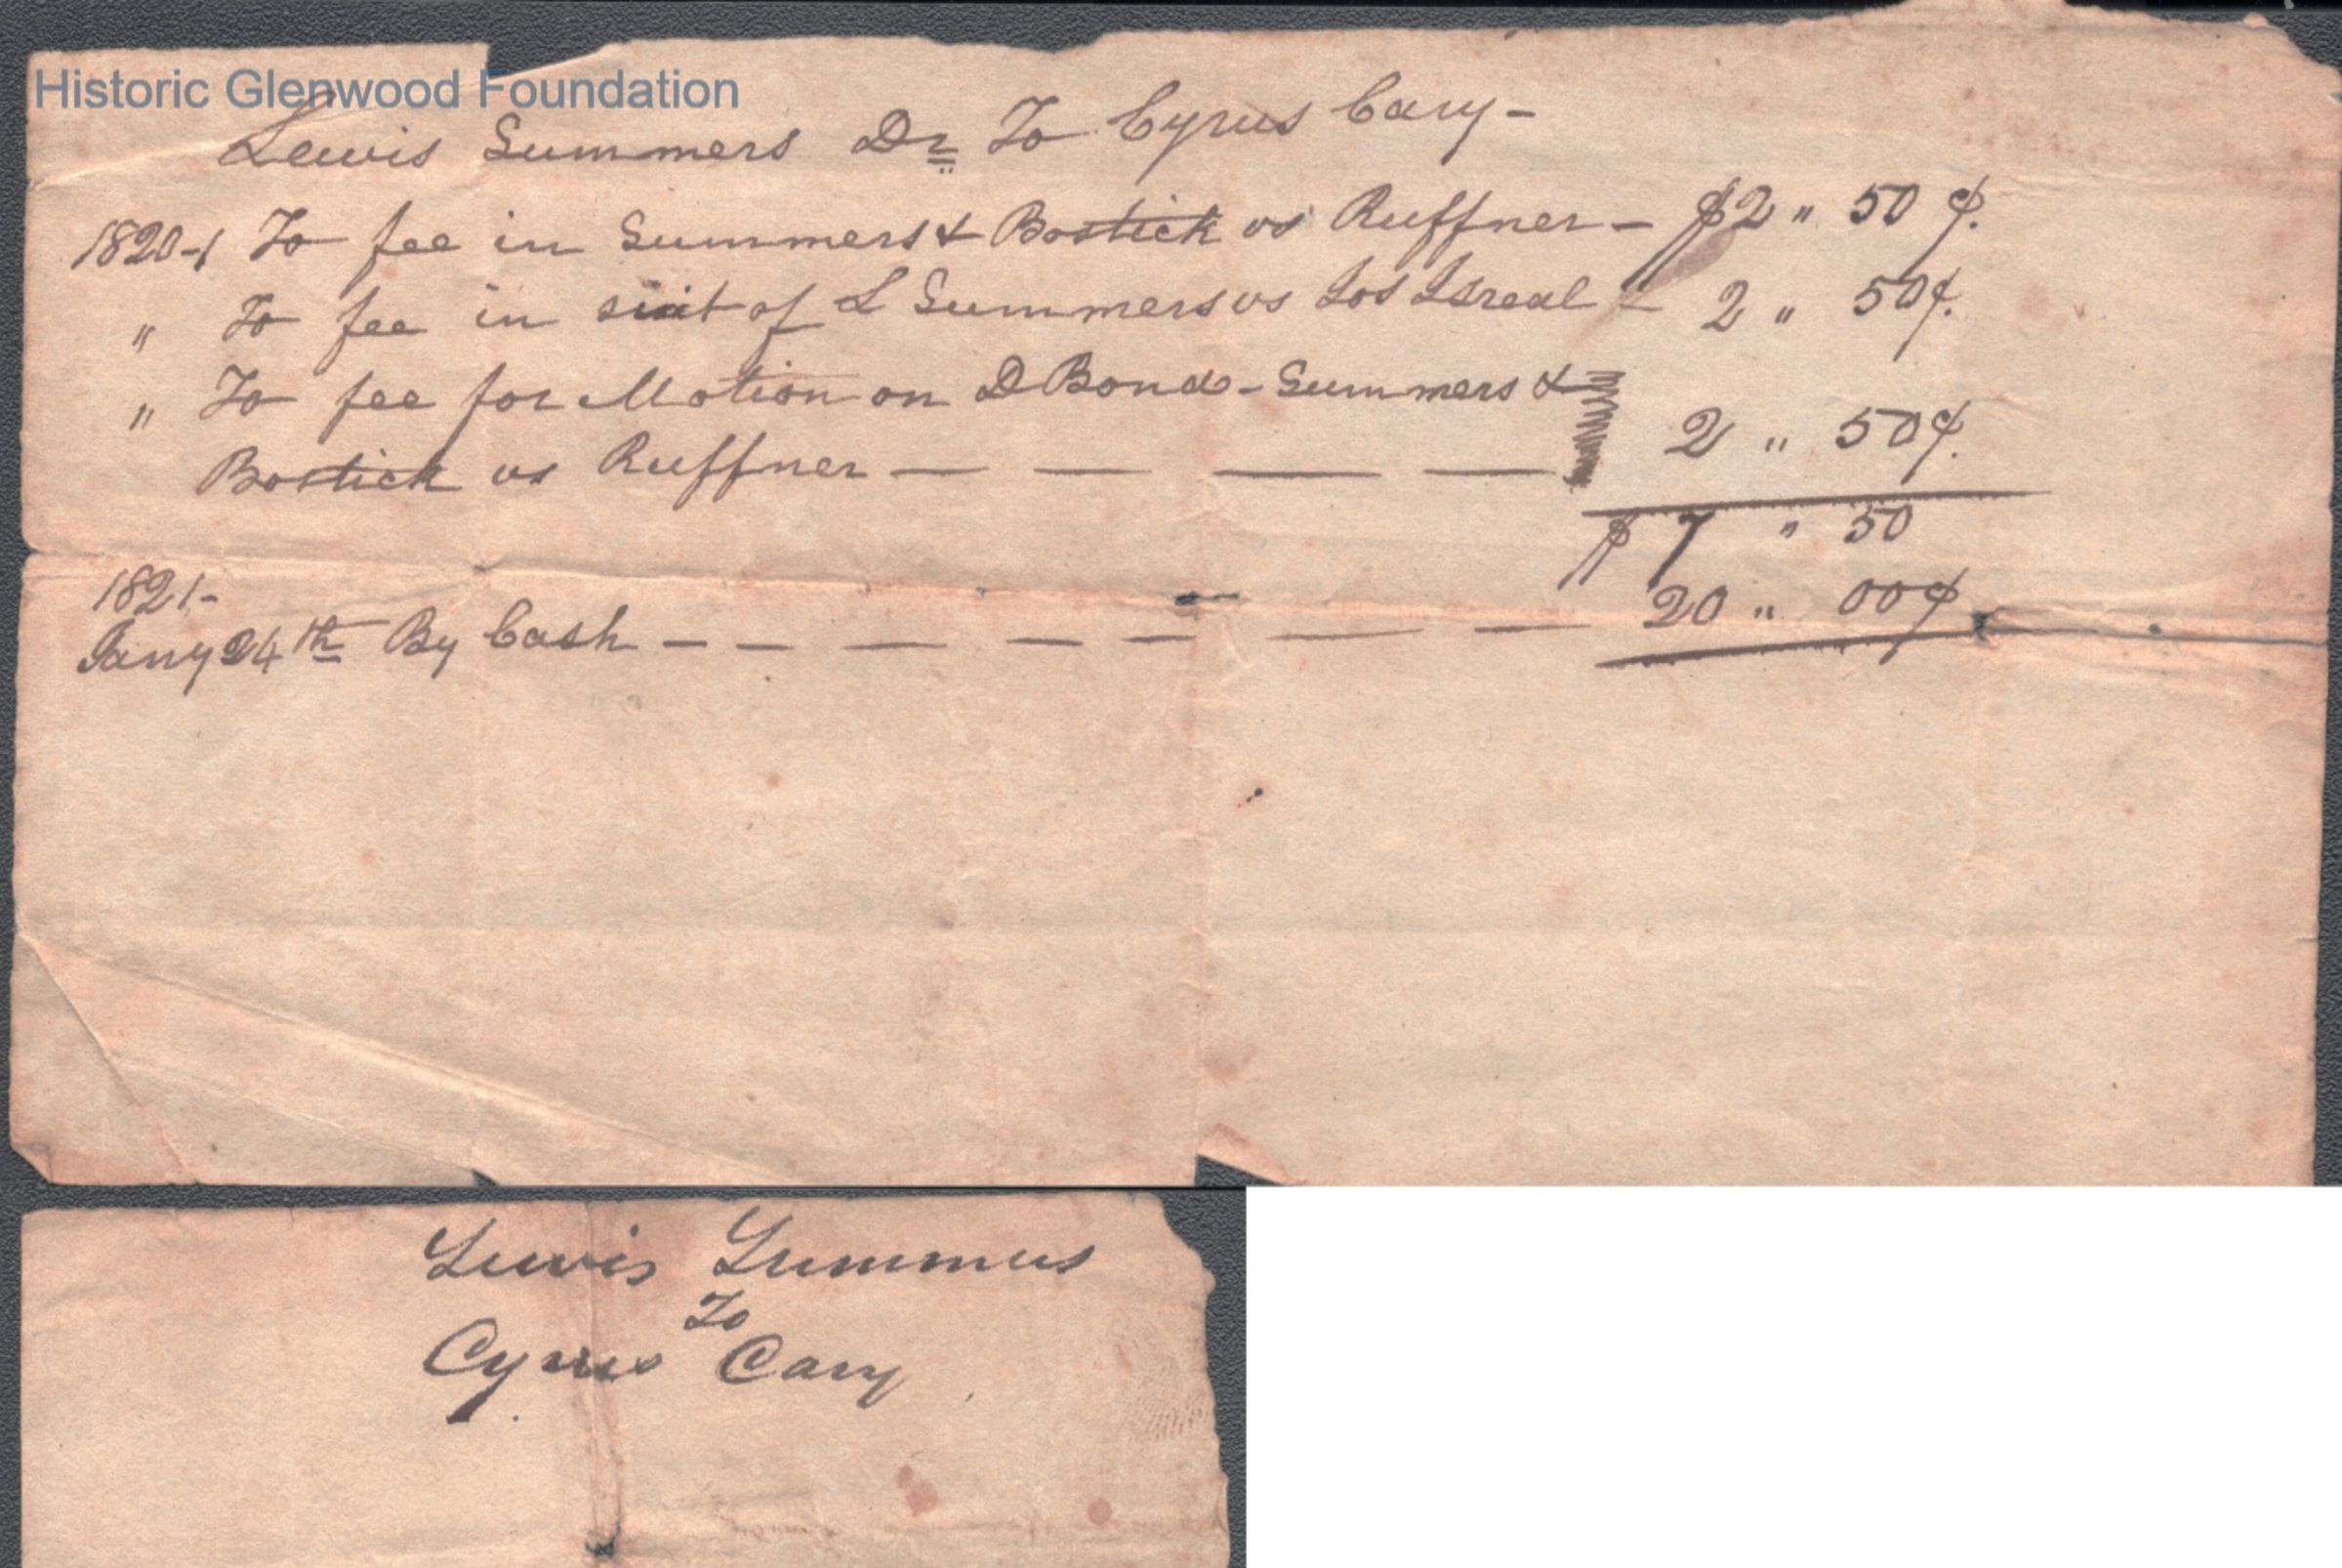 Historic Glenwood Foundation
Lewis Summers Dr To Cyrus Cary -
1820-1 To fee in Summers & Bostick vs Ruffner - $2 " 50 ¢.
" To fee in suit of L Summers vs Jos Isreal - 2 " 50¢.
" To fee for Motion on D Bond - Summers &
Bostick vs Ruffner — — — — 2 " 50¢.
$ 7 " 50
1821-
Jany 24th By Cash - - — — — — — 20 " 00¢
Lewis Summers
To
Cyrus Cary